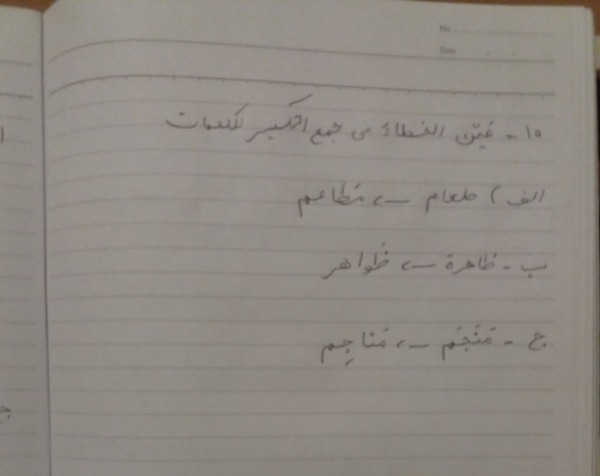 No
Date
١٥ - عَيِّن الخطاءَ فی جمع التکسیر للکلمات
الف) طعام ← مَطاعم
ب - ظاهرة ← ظَواهر
ج - مَنْجَم ← مَناجِم